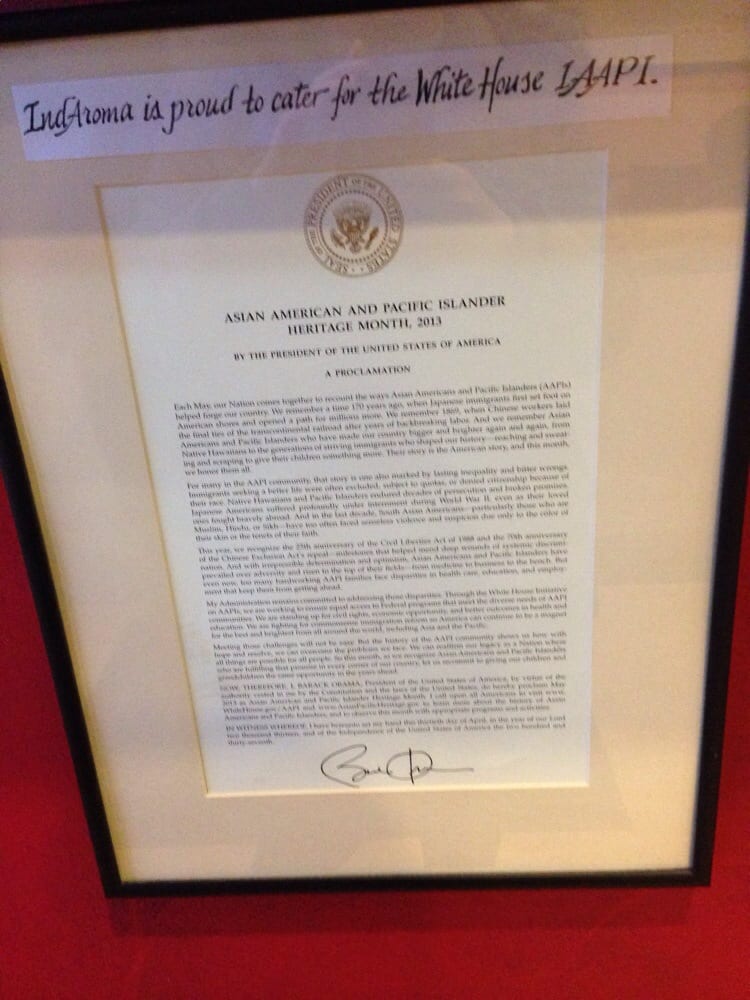 IndAroma is proud to cater for the White House IAAPI.
SEAL OF THE PRESIDENT OF THE UNITED STATES
ASIAN AMERICAN AND PACIFIC ISLANDER
HERITAGE MONTH, 2013
BY THE PRESIDENT OF THE UNITED STATES OF AMERICA
A PROCLAMATION
Each May, our Nation comes together to recount the ways Asian Americans and Pacific Islanders (AAPIs)
helped forge our country. We remember a time 170 years ago, when Japanese immigrants first set foot on
American shores and opened a path for millions more. We remember 1869, when Chinese workers laid
the final ties of the transcontinental railroad after years of backbreaking labor. And we remember Asian
Americans and Pacific Islanders who have made our country bigger and brighter again and again, from
Native Hawaiians to the generations of striving immigrants who shaped our history—reaching and sweat-
ing and scraping to give their children something more. Their story is the American story, and this month,
we honor them all.
For many in the AAPI community, that story is one also marked by lasting inequality and bitter wrongs.
Immigrants seeking a better life were often excluded, subject to quotas, or denied citizenship because of
their race. Native Hawaiians and Pacific Islanders endured decades of persecution and broken promises.
Japanese Americans suffered profoundly under internment during World War II, even as their loved
ones fought bravely abroad. And in the last decade, South Asian Americans—particularly those who are
Muslim, Hindu, or Sikh—have too often faced senseless violence and suspicion due only to the color of
their skin or the tenets of their faith.
This year, we recognize the 25th anniversary of the Civil Liberties Act of 1988 and the 70th anniversary
of the Chinese Exclusion Act's repeal—milestones that helped mend deep wounds of systemic discrimi-
nation. And with irrepressible determination and optimism, Asian Americans and Pacific Islanders have
prevailed over adversity and risen to the top of their fields—from medicine to business to the bench. But
even now, too many hardworking AAPI families face disparities in health care, education, and employ-
ment that keep them from getting ahead.
My Administration remains committed to addressing those disparities. Through the White House Initiative
on AAPIs, we are working to ensure equal access to Federal programs that meet the diverse needs of AAPI
communities. We are standing up for civil rights, economic opportunity, and better outcomes in health and
education. We are fighting for commonsense immigration reform so America can continue to be a magnet
for the best and brightest from all around the world, including Asia and the Pacific.
Meeting those challenges will not be easy. But the history of the AAPI community shows us how with
hope and resolve, we can overcome the problems we face. We can reaffirm our legacy as a Nation where
all things are possible for all people. So this month, as we recognize Asian Americans and Pacific Islanders
who are fulfilling that promise in every corner of our country, let us recommit to giving our children and
grandchildren the same opportunity in the years ahead.
NOW, THEREFORE, I, BARACK OBAMA, President of the United States of America, by virtue of the
authority vested in me by the Constitution and the laws of the United States, do hereby proclaim May
2013 as Asian American and Pacific Islander Heritage Month. I call upon all Americans to visit www.
WhiteHouse.gov/AAPI and www.AsianPacificHeritage.gov to learn more about the history of Asian
Americans and Pacific Islanders, and to observe this month with appropriate programs and activities.
IN WITNESS WHEREOF, I have hereunto set my hand this thirtieth day of April, in the year of our Lord
two thousand thirteen, and of the Independence of the United States of America the two hundred and
thirty-seventh.